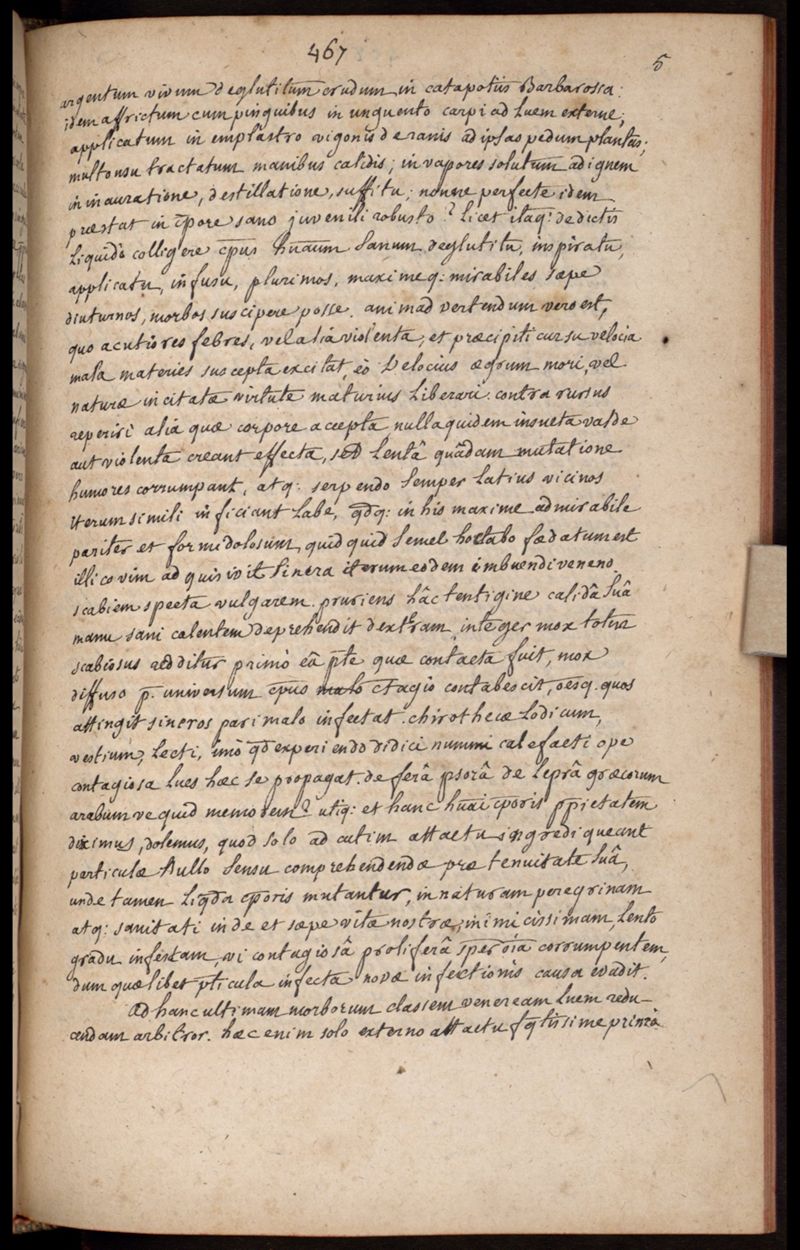 467
5
argentum vivum deglutitum crudum in catapotiis Barbarossa:
idem affrictum cum pinguibus in unguento carpi ad luem externe;
applicatum in emplastro vigonis de ranis ad ipsas pedum plantas;
multo usu tractatum manibus calidis; in vapores solutum ad ignem
in inauratione, destillatione, suffitu; nonne perfecte idem
præstat in c̄pore sano juvenili robusto? licet itaq: de dictis
liquidò colligere c̄pus hūanum sanum deglutitu, inspiratu,
applicatu, infusu, plurimos, maximeq: mirabiles sæpe
diuturnos, morbos suscipere posse. animadvertendum vero est,
quo acutiores febres, vel alia violenta, et præcipiti cursu velocia
mala materies suscepta excitat, eò velocius ægrum mori, vel
naturæ incitatæ virtute maturius liberari. contra rursus
reperiri alia quæ corpore accepta nulla quidem insueta valde
aut violenta creant effecta, sed lentâ quâdam mutatione
humores corrumpant, atq: serpendo semper latius vicinos
iterum simili inficiant labe, q̄dq: in his maxime admirabile
pariter et formidolosum, quidquid semel hoc tabo fædatum est
illico vim adquisivit sincra iterum eodem imbuendi veneno.
scabiem specta vulgarem. pruriens hâc lentigine calidâ suâ
manu sani calentem deprehendit dextram, integer mox totus
scabiosus redditur primò eâ p̄te quæ contacta fuit, mox
diffuso p. universum c̄pus c̄tagio contabescit, oēsq. quos
attingit sinceros pari malo infectat. chirothecæ lodicum,
vestium, lecti, imò q̄d experiendo didici nummi calefacti ope
contagiosa lues hæc se propagat. de ferâ psorâ de leprâ græcorum
arabumve quid memorem? utiq: et hanc hūai c̄poris p̄prietatem
diximus, dolemus, quod solo ad cutim attactu ingredi queant
particulæ nullo sensu comprehendendæ præ tenuitate suâ,
unde tamen liq̄da c̄poris mutantur, in naturam peregrinam
atq: sanitati inde et sæpe vitæ nostræ inimicissimam, lento
gradu infestam, vi contagiosâ proliferâ corrumpentem,
dum quælibet p̄ticula infecta novæ infectionis causa evadit.
Ad hanc ultimam morborum classem veneream luem redu-
cendam arbitror. hæc enim solo externo attactu fq̄tissime primò